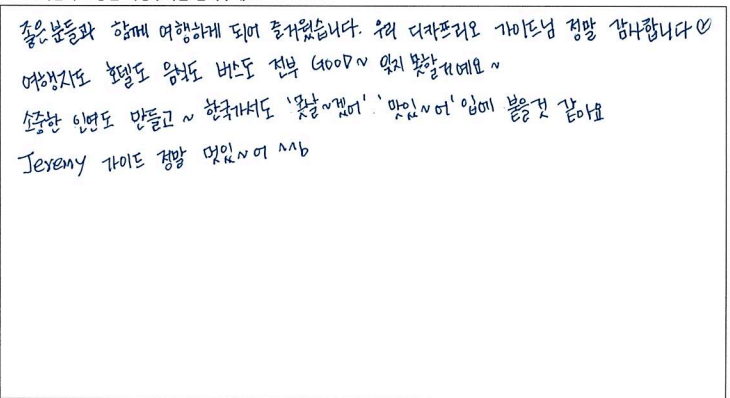 좋은분들과 함께 여행하게 되어 즐거웠습니다. 우리 디카프리오 가이드님 정말 감사합니다♡
여행지도 호텔도 음식도 버스도 전부 GOOD~ 잊지 못할거예요~
소중한 인연도 만들고~ 한국가서도 '못살~겠어' '맛있~어' 입에 붙을것 같아요
Jeremy 가이드 정말 멋있~어 ^^b